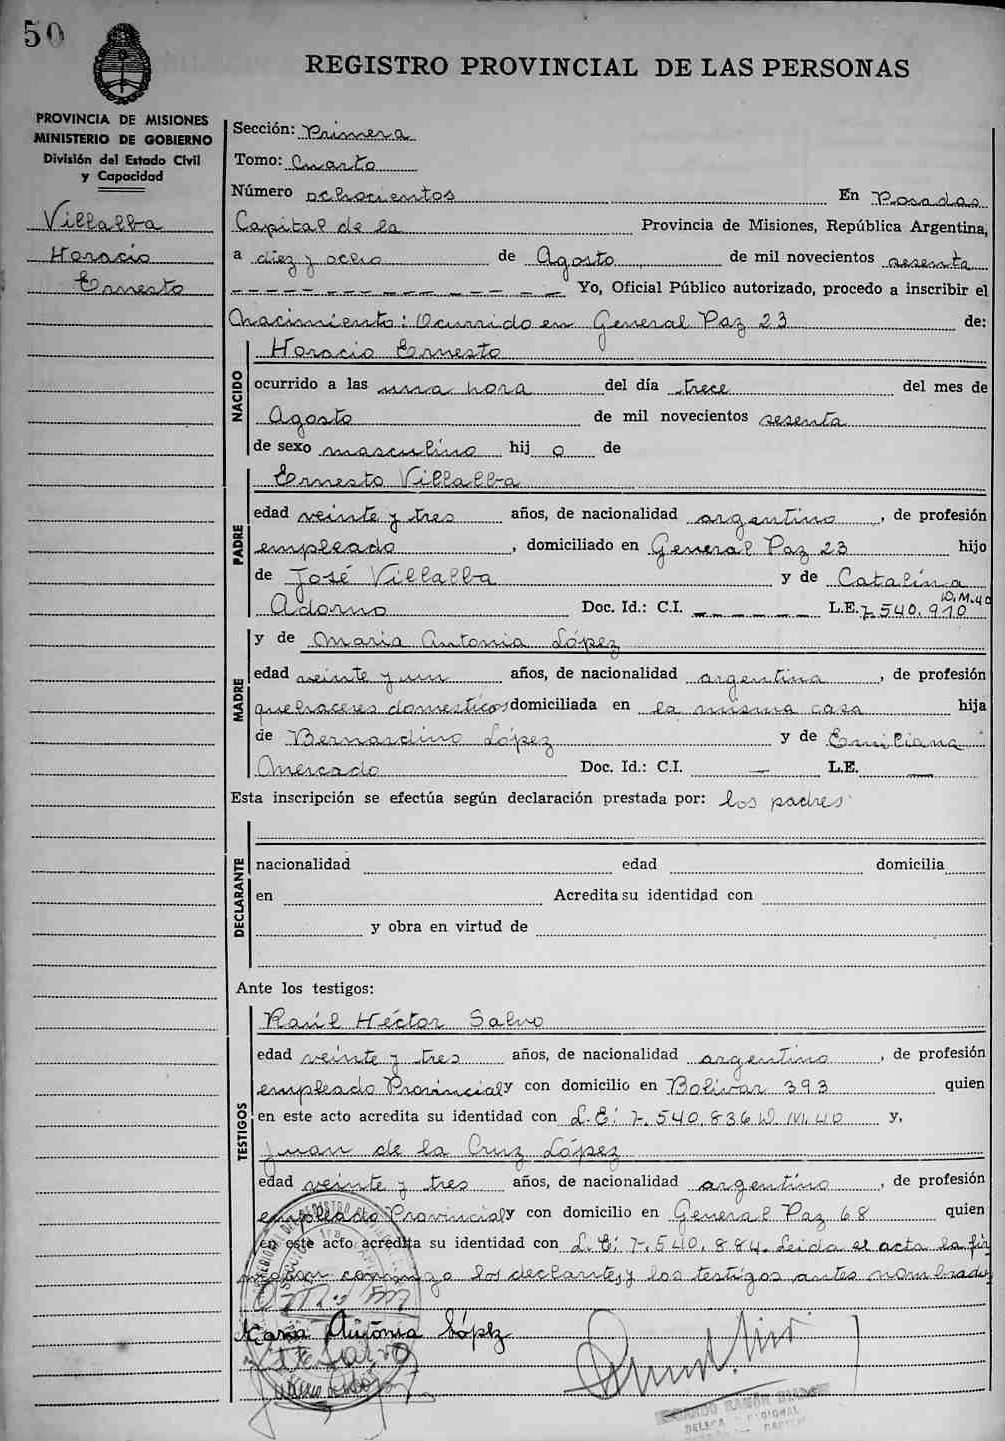 50
REGISTRO PROVINCIAL DE LAS PERSONAS
PROVINCIA DE MISIONES
MINISTERIO DE GOBIERNO
División del Estado Civil
y Capacidad
Villalba
Horacio
Ernesto
Sección: Primera
Tomo: Cuarto
Número ochocientos En Posadas
Capital de la Provincia de Misiones, República Argentina,
a diez y ocho de Agosto de mil novecientos sesenta
Yo, Oficial Público autorizado, procedo a inscribir el
Nacimiento: Ocurrido en General Paz 23 de:
NACIDO
Horacio Ernesto
ocurrido a las una hora del día trece del mes de
Agosto de mil novecientos sesenta
de sexo masculino hij o de
PADRE
Ernesto Villalba
edad veinte y tres años, de nacionalidad argentino, de profesión
empleado, domiciliado en General Paz 23 hijo
de José Villalba y de Catalina
Adorno Doc. Id.: C.I. L.E. 7.540.910 D.M.40
MADRE
y de Maria Antonia López
edad veinte y un años, de nacionalidad argentina, de profesión
quehaceres domesticos domiciliada en la misma casa hija
de Bernardino López y de Emiliana
Mercado Doc. Id.: C.I. — L.E. —
Esta inscripción se efectúa según declaración prestada por: los padres
DECLARANTE
nacionalidad edad domicilia
en Acredita su identidad con
y obra en virtud de
Ante los testigos:
TESTIGOS
Raúl Héctor Salvo
edad veinte y tres años, de nacionalidad argentino, de profesión
empleado Provincial y con domicilio en Bolivar 393 quien
en este acto acredita su identidad con L.E: 7.540.836 D.M.40 y,
Juan de la Cruz López
edad veinte y tres años, de nacionalidad argentino, de profesión
empleado Provincial y con domicilio en General Paz 68 quien
en este acto acredita su identidad con L.E: 7.540.884. Leida el acta la fir
conmigo los declarantes y los testigos antes nombrados
Maria Antonia López